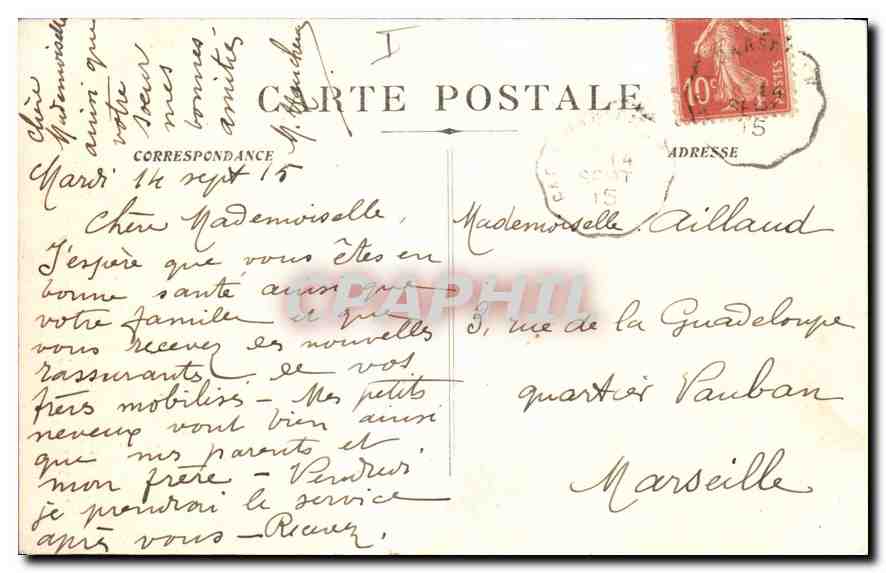 CARTE POSTALE
CORRESPONDANCE
ADRESSE
Mardi 14 sept 15
Chère Mademoiselle,
J'espère que vous êtes en
bonne santé ainsi que
votre famille et que
vous recevez des nouvelles
rassurantes de vos
frères mobilisés - Mes petits
neveux vont bien ainsi
que mes parents et
mon frère - Vendredi
je prendrai le service
après vous - Recevez,
Chère
Mademoiselle
ainsi que
votre
sœur
mes
bonnes
amitiés
Mademoiselle Aillaud
3, rue de la Guadeloupe
quartier Vauban
Marseille
10c
POSTES
14
SEPT
15
14
SEPT
15
I
CPAPHIL